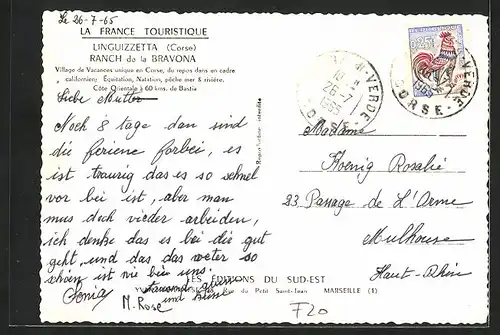 Le 26-7-65
LA FRANCE TOURISTIQUE
LINGUIZZETTA (Corse)
RANCH de la BRAVONA
Village de Vacances unique en Corse, du repos dans en cadre
californien: Équitation, Natation, pêche mer & rivière.
Côte Orientale à 60 kms. de Bastia
Liebe Mutter
Noch 8 tage dan sind
die feriene forbei, es
ist traurig das es so schnel
vor bei ist, aber man
mus doch vieder arbeiden,
ich denke das es bei die gut
geht, und das das weter so
schoen ist wie bei uns.
Sonia
M. Rose
und
Reproduction interdite
LES ÉDITIONS DU SUD-EST
Rue du Petit Saint-Jean MARSEILLE (1)
0,25
VERDE
18 H
26-7
1965
CORSE
VERDE
1965
CORSE
Madame
Koenig Rosalie
23 Passage de L'Orme
Mulhouse
Haut-Rhin
F20